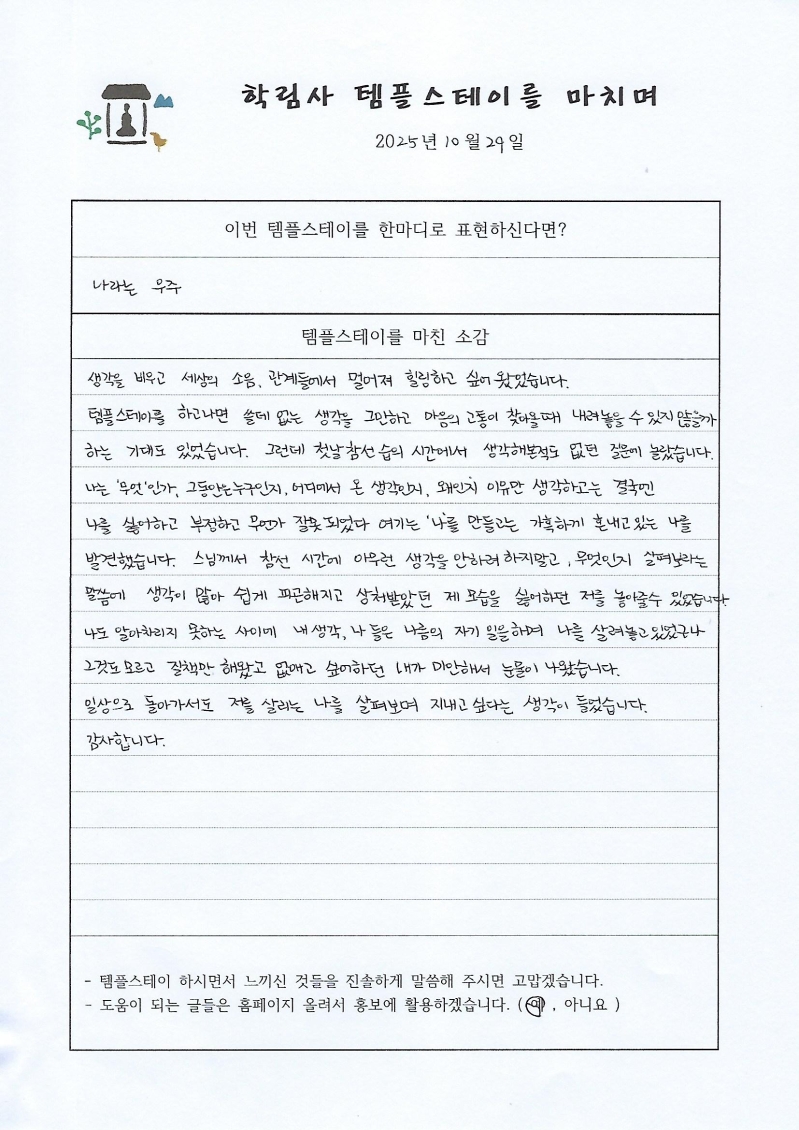 학림사 템플스테이를 마치며
2025년 10월 29일
이번 템플스테이를 한마디로 표현하신다면?
나라는 우주
템플스테이를 마친 소감
생각을 비우고 세상의 소음, 관계들에서 멀어져 힐링하고 싶어 왔었습니다.
템플스테이를 하고나면 쓸데 없는 생각을 그만하고 마음의 고통이 찾아올때 내려놓을 수 있지 않을까
하는 기대도 있었습니다. 그런데 첫날 참선 습의 시간에서 생각해본적도 없던 질문에 놀랐습니다.
나는 '무엇'인가, 그동안은 누구인지, 어디에서 온 생각인지, 왜인지 이유만 생각하고는 결국엔
나를 싫어하고 부정하고 무언가 잘못되었다 여기는 '나'를 만들고는 가혹하게 혼내고 있는 나를
발견했습니다. 스님께서 참선 시간에 아무런 생각을 안하려 하지말고, 무엇인지 살펴보라는
말씀에 생각이 많아 쉽게 피곤해지고 상처받았던 제 모습을 싫어하던 저를 놓아줄수 있었습니다.
나도 알아차리지 못하는 사이에 내 생각, 나 들은 나름의 자기 일을하며 나를 살려놓고 있었구나
그것도 모르고 질책만 해왔고 없애고 싶어하던 내가 미안해서 눈물이 나왔습니다.
일상으로 돌아가서도 저를 살리는 나를 살펴보며 지내고 싶다는 생각이 들었습니다.
감사합니다.
- 템플스테이 하시면서 느끼신 것들을 진솔하게 말씀해 주시면 고맙겠습니다.
- 도움이 되는 글들은 홈페이지 올려서 홍보에 활용하겠습니다. ( 예 , 아니요 )